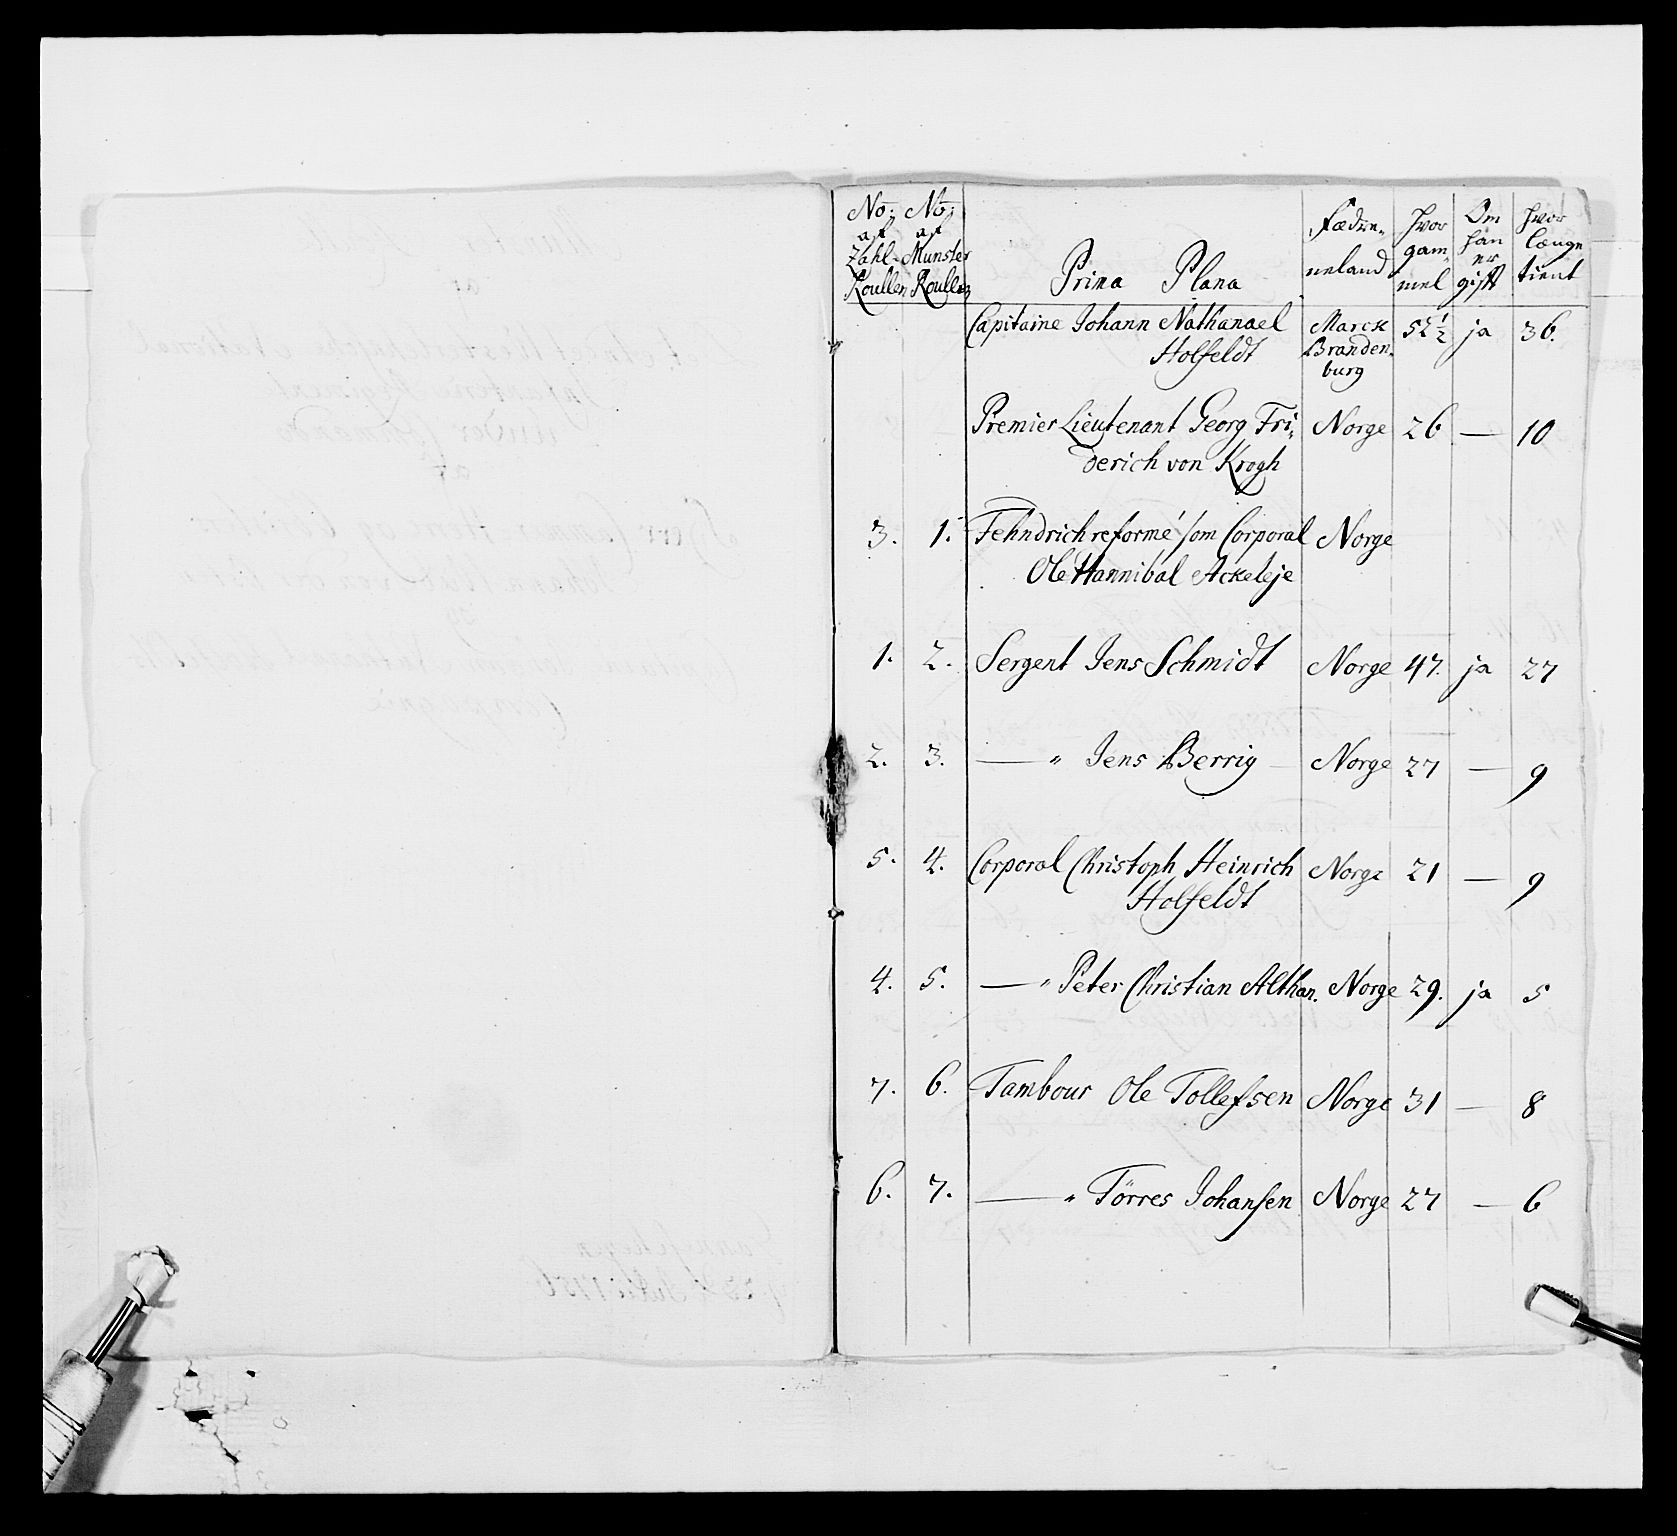 No: No:
af af
Zahl- Munster
Roullen Roullen
Prima Plana
Fædre-
neland
Hvor
gam-
mel
Om
han
er
gift
Hvor
længe
tient
Capitaine Johann Nathanael Marck 52½ ja 36.
Holfeldt Branden-
burg
Premier Lieutenant Georg Fri- Norge 26 — 10
derich von Krogh
3. 1. Fehndrich reformé som Corporal Norge
Ole Hannibal Ackeleje
1. 2. Sergent Jens Schmidt Norge 47. ja 27
2. 3. — " Jens Berrig Norge 27 — 9
5. 4. Corporal Christoph Heinrich Norge 21 — 9
Holfeldt
4. 5. — " Peter Christian Althan. Norge 29. ja 5
7. 6. Tambour Ole Tollefsen Norge 31 — 8
6. 7. — " Törres Johansen Norge 27 — 6